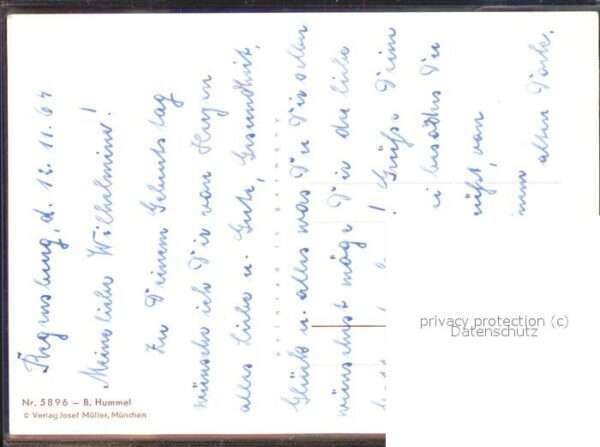 Regensburg, d. 12.11.64
Meine liebe Wilhelmine!
Zu Deinem Geburtstag
wünsche ich Dir von Herzen
alles Liebe u. Gute, Gesundheit,
Glück u. alles was Du Dir selber
wünschst möge Dir der liebe
! Grüße Deine
u besuchst Du
nicht, von
alten Tante.
Nr. 5896 – B. Hummel
© Verlag Josef Müller, München
privacy protection (c)
Datenschutz